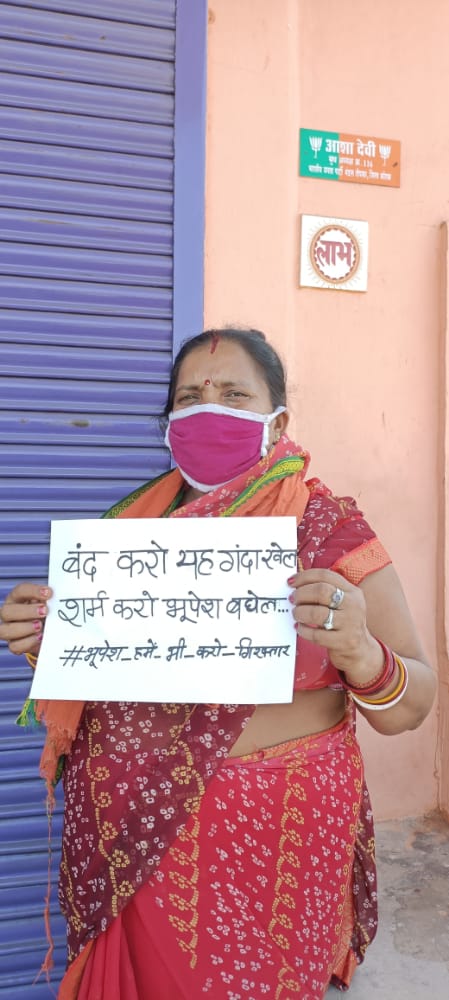 आशा देवी
बूथ अध्यक्ष क्र. 116
भारतीय जनता पार्टी मंडल
लाभ
बंद करो यह गंदा खेल
शर्म करो भूपेश बघेल...
#भूपेश_हमें_भी_करो_गिरफ्तार